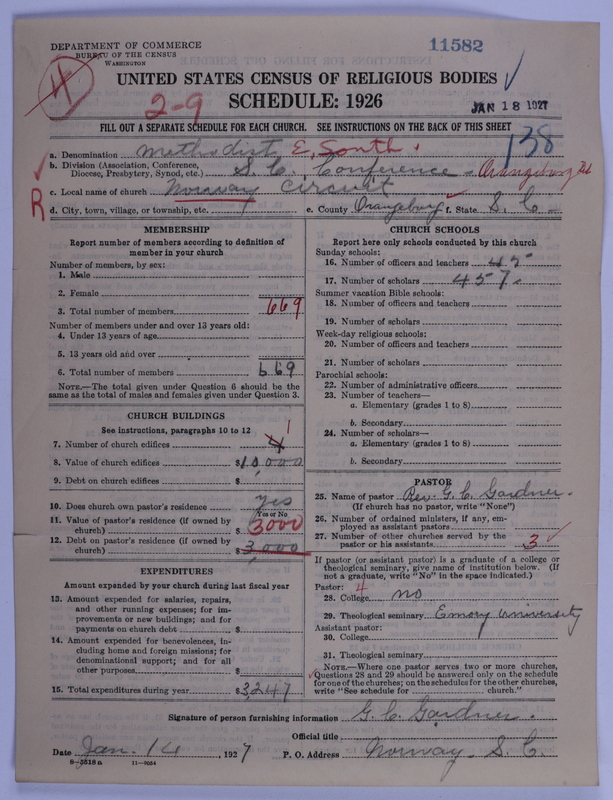 DEPARTMENT OF COMMERCE
BUREAU OF THE CENSUS
WASHINGTON
11582
4
UNITED STATES CENSUS OF RELIGIOUS BODIES
2-9
SCHEDULE: 1926
JAN 18 1927
FILL OUT A SEPARATE SCHEDULE FOR EACH CHURCH. SEE INSTRUCTIONS ON THE BACK OF THIS SHEET
138
a. Denomination Methodist E. South.
b. Division (Association, Conference, Diocese, Presbytery, Synod, etc.) S. C. Conference - Orangeburg Dist
c. Local name of church Norway Circuit
R
d. City, town, village, or township, etc. e. County Orangeburg f. State S. C.
MEMBERSHIP
Report number of members according to definition of
member in your church
Number of members, by sex:
1. Male
2. Female
3. Total number of members 669
Number of members under and over 13 years old:
4. Under 13 years of age
5. 13 years old and over
6. Total number of members 669
NOTE.—The total given under Question 6 should be the
same as the total of males and females given under Question 3.
CHURCH BUILDINGS
See instructions, paragraphs 10 to 12
7. Number of church edifices 4 1
8. Value of church edifices $10,000
9. Debt on church edifices $
10. Does church own pastor's residence yes
Yes or No
11. Value of pastor's residence (if owned by
church) $ 3000
12. Debt on pastor's residence (if owned by
church) $3,000
EXPENDITURES
Amount expended by your church during last fiscal year
13. Amount expended for salaries, repairs,
and other running expenses; for im-
provements or new buildings; and for
payments on church debt $
14. Amount expended for benevolences, in-
cluding home and foreign missions; for
denominational support; and for all
other purposes $
15. Total expenditures during year $3,247
CHURCH SCHOOLS
Report here only schools conducted by this church
Sunday schools:
16. Number of officers and teachers 45
17. Number of scholars 457
Summer vacation Bible schools:
18. Number of officers and teachers
19. Number of scholars
Week-day religious schools:
20. Number of officers and teachers
21. Number of scholars
Parochial schools:
22. Number of administrative officers
23. Number of teachers—
a. Elementary (grades 1 to 8)
b. Secondary
24. Number of scholars—
a. Elementary (grades 1 to 8)
b. Secondary
PASTOR
25. Name of pastor Rev. G. C. Gardner.
(If church has no pastor, write "None")
26. Number of ordained ministers, if any, em-
ployed as assistant pastors
27. Number of other churches served by the
pastor or his assistants 3
If pastor (or assistant pastor) is a graduate of a college or
theological seminary, give name of institution below. (If
not a graduate, write "No" in the space indicated.)
Pastor: 4
28. College no
29. Theological seminary Emory University
Assistant pastor:
30. College
31. Theological seminary
NOTE.—Where one pastor serves two or more churches,
Questions 28 and 29 should be answered only on the schedule
for one of the churches; on the schedules for the other churches,
write "See schedule for church."
Signature of person furnishing information G. C. Gardner.
Official title
Date Jan. 14, 1927 P. O. Address Norway, S. C.
8-5518a 11-9054